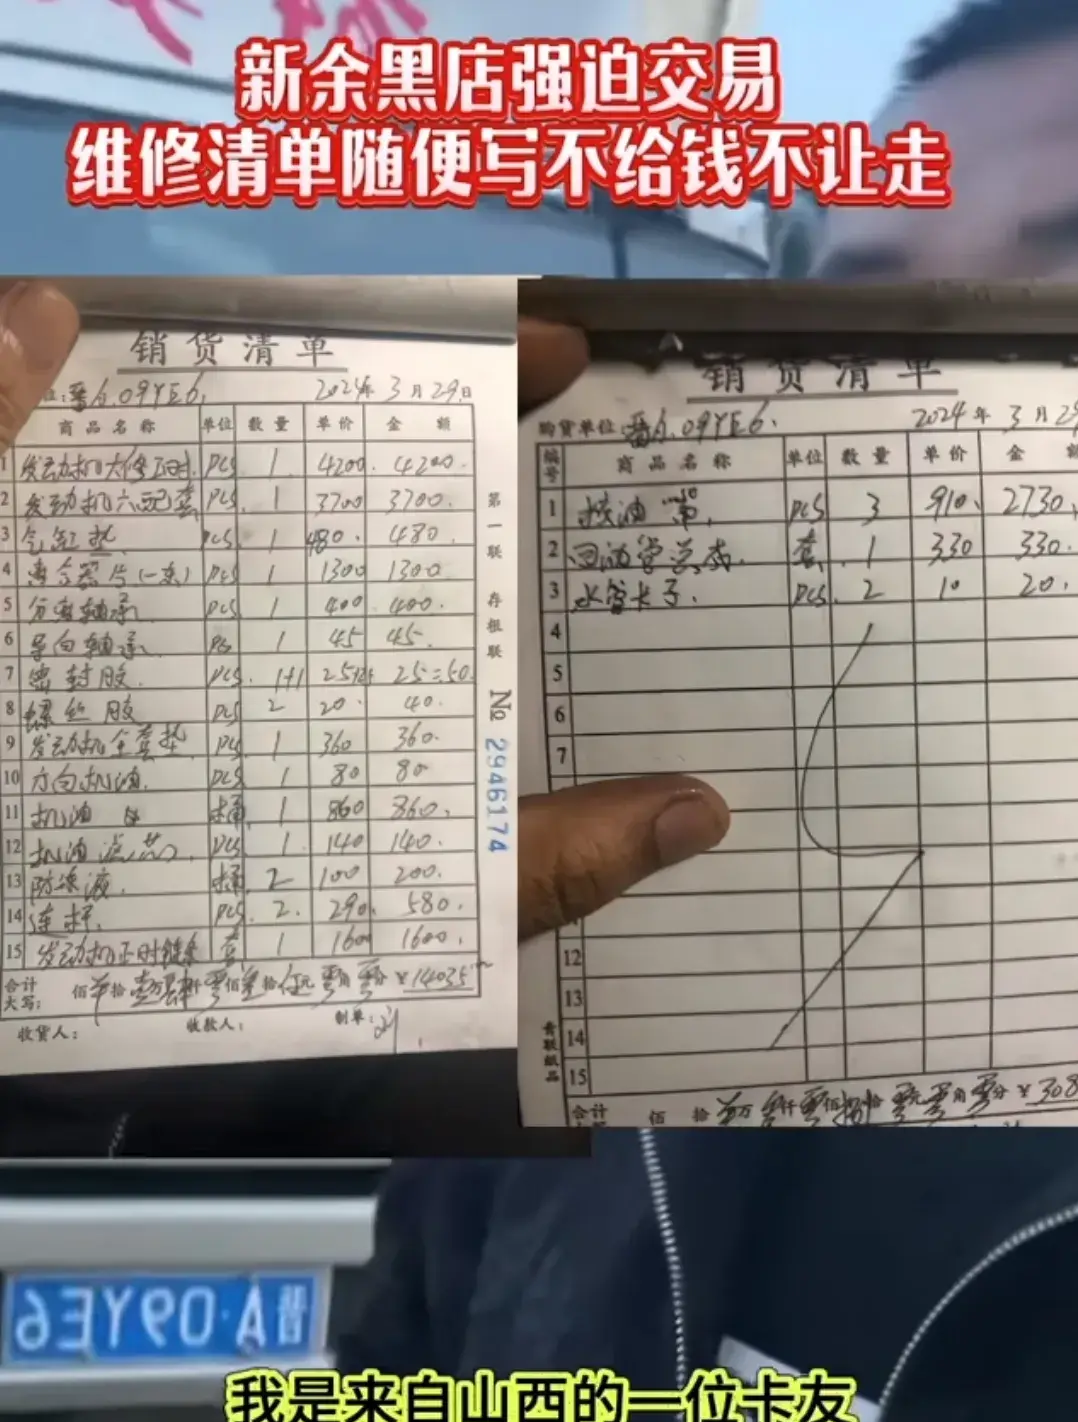 新余黑店强迫交易
维修清单随便写不给钱不让走
销货清单
位:晋A.09YE6. 2024年3月29日
商品名称 单位 数量 单价 金额
1 发动机大修工时 PCS 1 4200. 4200.
2 发动机六配套 PCS. 1 3700 3700.
3 气缸垫 PCS. 1 480. 480.
4 离合器片(一套) PCS 1 1300 1300.
5 分离轴承 PCS 1 400. 400.
6 导向轴承 PCS 1 45 45.
7 密封胶. PCS. 1+1 25+25 25=50.
8 螺丝胶 PCS 2 20. 40.
9 发动机全套垫. PCS. 1 360 360.
10 方向机油. PCS. 1 80 80
11 机油 桶. 1 860 860.
12 机油滤芯. PCS 1. 140 140.
13 防冻液. 桶. 2 100 200.
14 连杆. PCS. 2. 290. 580.
15 发动机正时链条 套. 1 1600 1600.
合计大写: 佰 拾 壹万肆仟零佰叁拾伍元零角零分 ¥14035
收货人: 收款人: 制单:刘
第一联 存根联
№ 2946174
销货清单
购货单位 晋A.09YE6. 2024年3月29
编号 商品名称 单位 数量 单价 金额
1 PCS 3 910. 2730.
2 回油管总成. 套. 1 330 330.
3 水管卡子. PCS. 2 10 20.
4
5
6
7
12
13
14
15
青联纸品
合计 佰 拾 万 仟零佰捌拾零元零角零分 ¥308
晋A·09YE6
我是来自山西的一位卡友